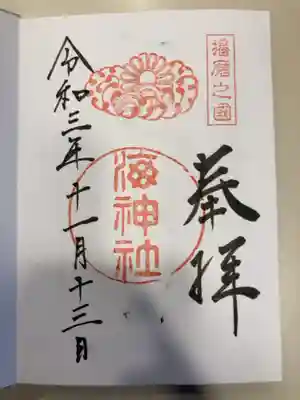 播磨之國
奉拝
海神社
令和三年十一月十三日